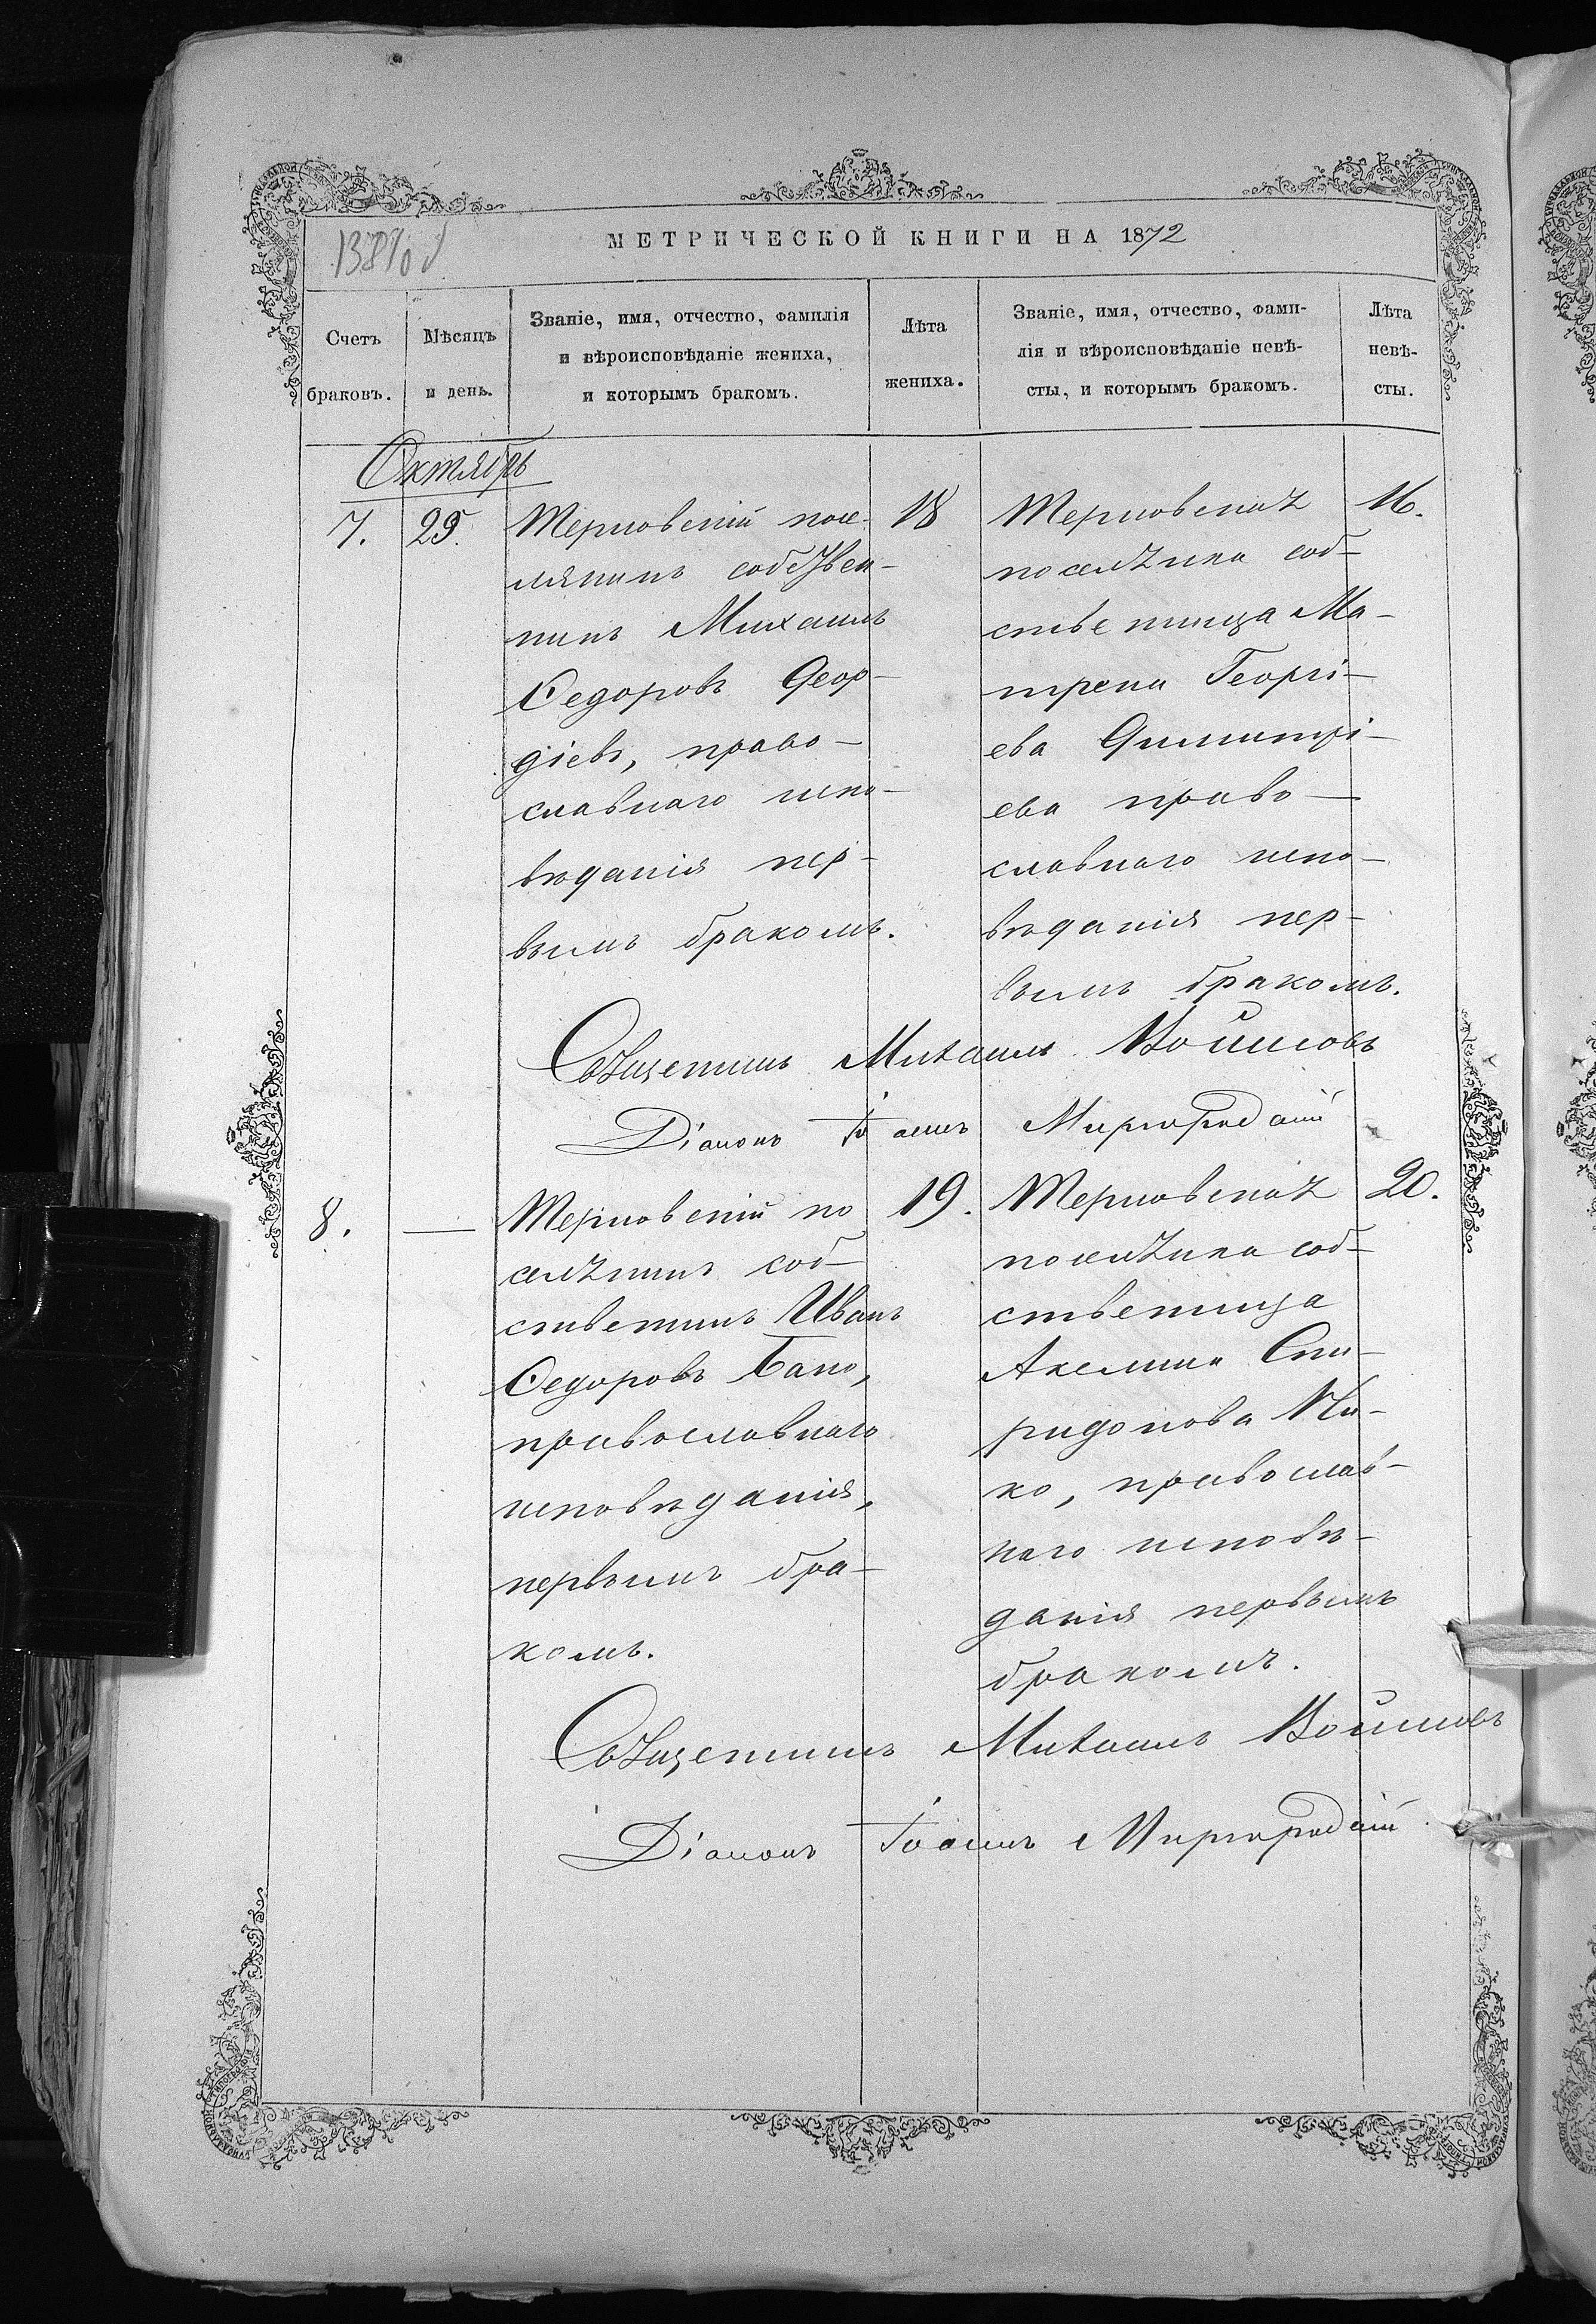 МЕТРИЧЕСКОЙ КНИГИ НА 1872
Счетъ браковъ.
Мѣсяцъ и день.
Званіе, имя, отчество, фамилія
и вѣроисповѣданіе жениха,
и которымъ бракомъ.
Лѣта жениха.
Званіе, имя, отчество, фами-
лія и вѣроисповѣданіе невѣ-
сты, и которымъ бракомъ.
Лѣта невѣ-
сты.
Октябрь
7. 29.
Терновскій посе-
лянинъ собствен-
никъ Михаилъ
Ѳедоровъ
православнаго испо-
вѣданія пер-
вымъ бракомъ.
18
Терновская
поселянка соб-
ственница Ма-
трена Георгі-
ева Димитрі-
ева право-
славнаго испо-
вѣданія пер-
вымъ бракомъ.
16.
Священникъ Михаилъ Войновъ
Діаконъ Іоаннъ Миргородскій
8. —
Терновскій по
селянинъ соб-
ственникъ Иванъ
Ѳедоровъ
православнаго
исповѣданія,
первымъ бра-
комъ.
19.
Терновская
поселянка соб-
ственница
Акелина Спи-
ридонова
православ-
наго исповѣ-
данія первымъ
бракомъ.
20.
Священникъ Михаилъ Войновъ
Діаконъ Іоаннъ Миргородскій